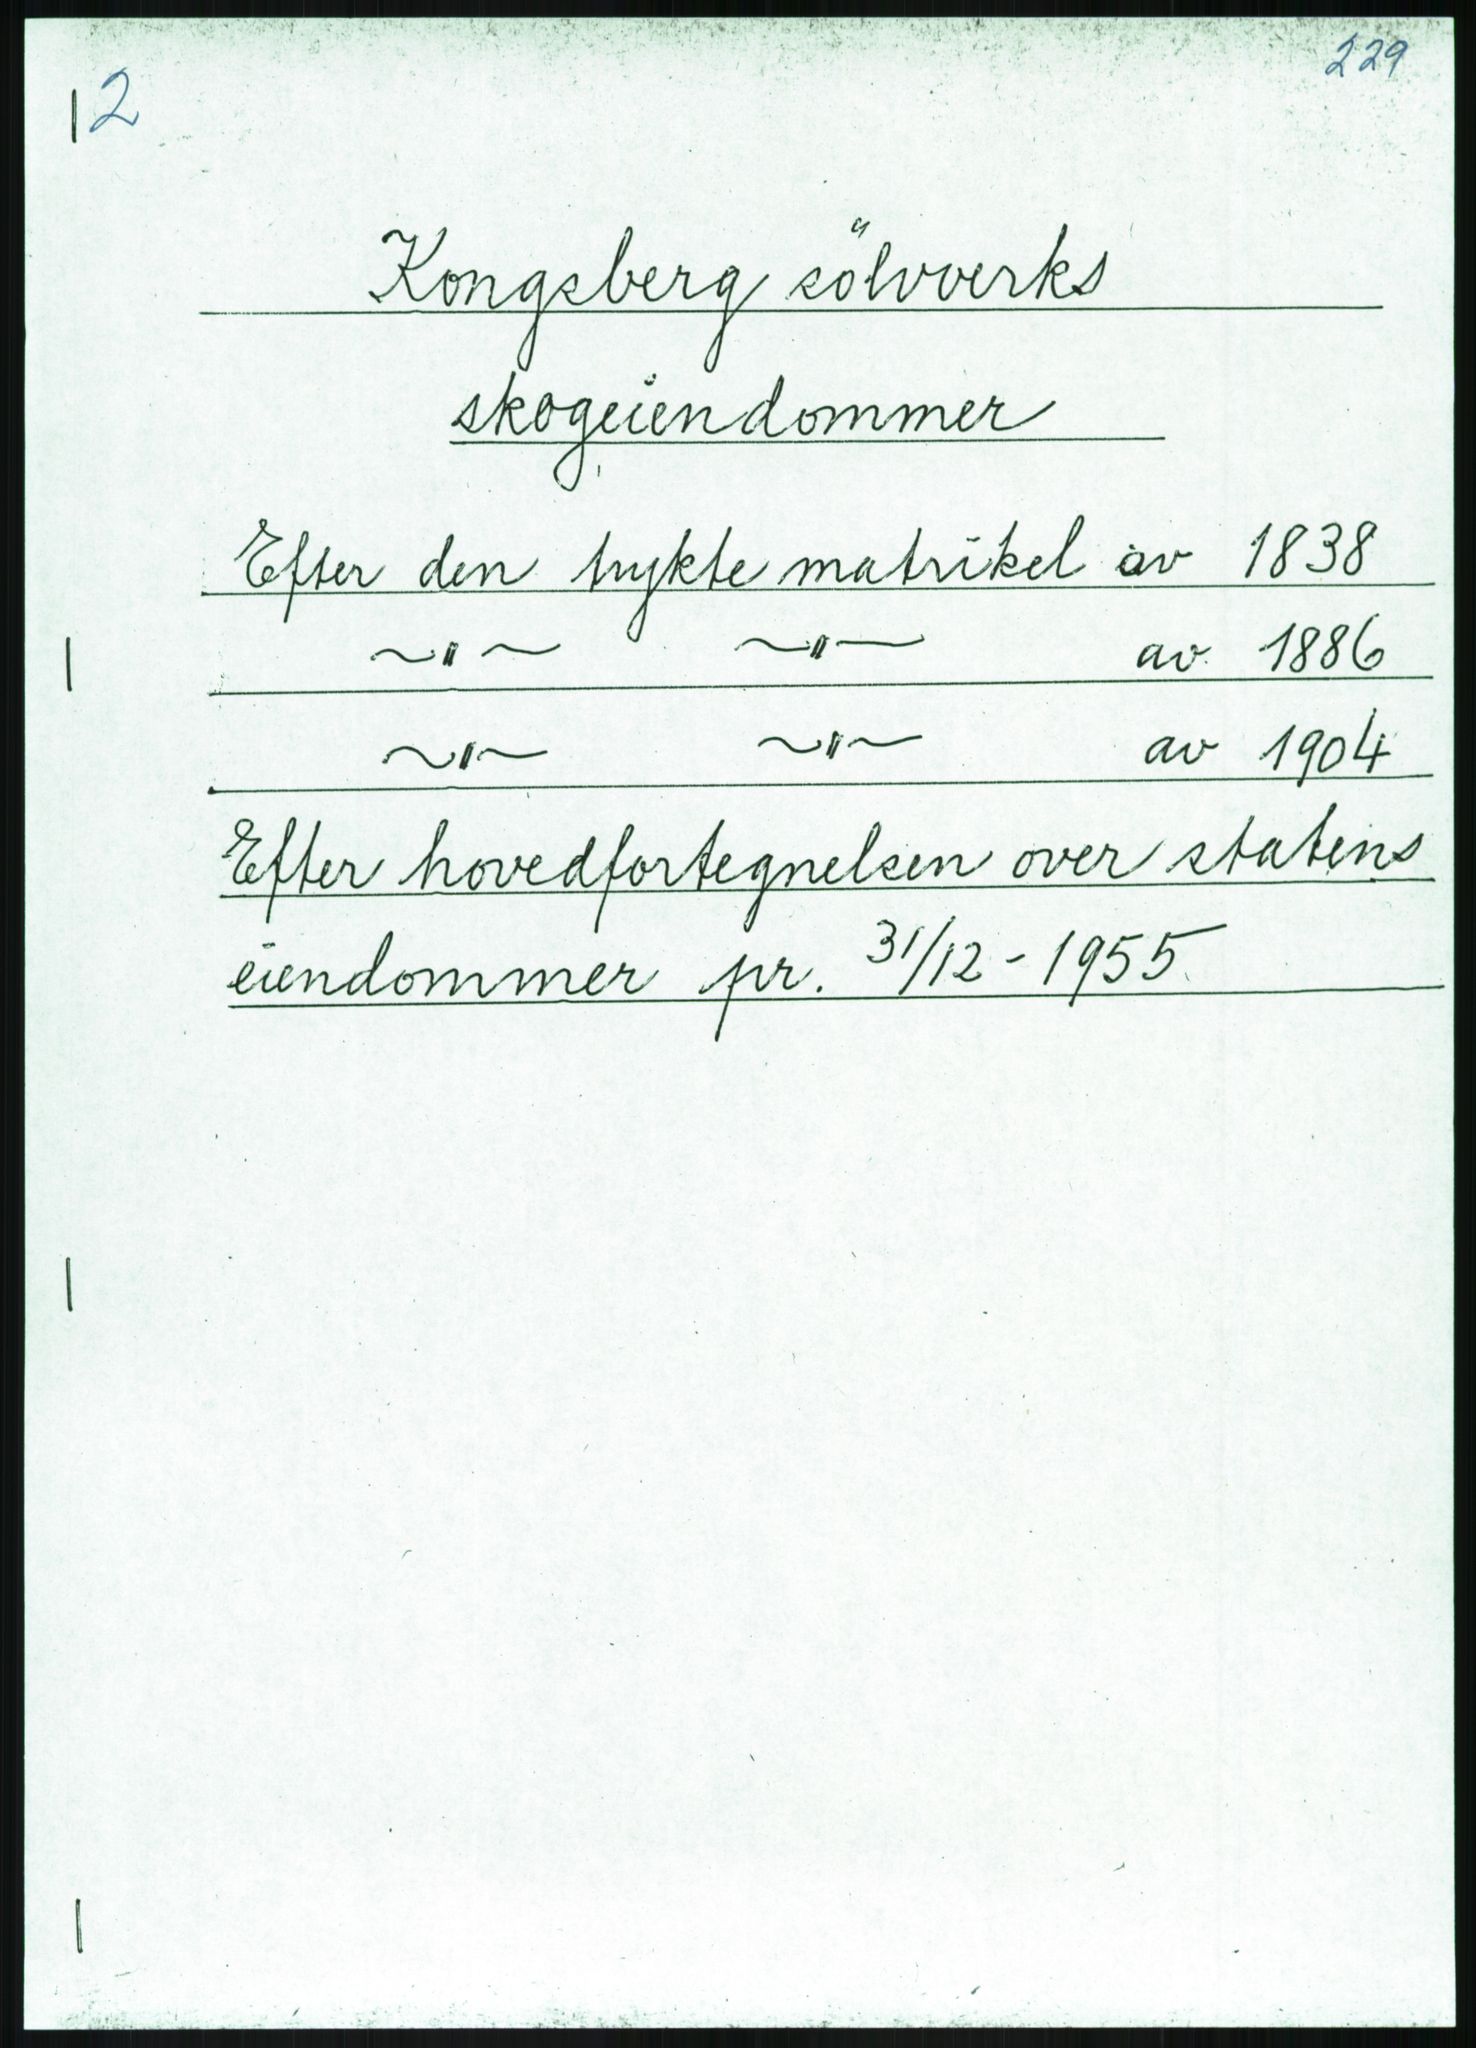 229
2
Kongsberg sölvverks
skogeiendommer
Efter den trykte matrikel av 1838
~"~ ~"~ av 1886
~"~ ~"~ av 1904
Efter hovedfortegnelsen over statens
eiendommer pr. 31/12-1955